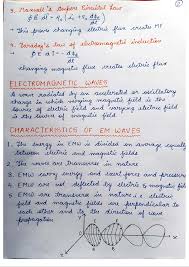 3. Maxwell's Ampere Circuital law
∮ B dl = μ₀ (I + ε₀ dφE/dt)
→ this proves changing electric flux creates MF
4. Faraday's law of electromagnetic induction
∮ E dl = dφ/dt
changing magnetic flux creates electric flux
ELECTROMAGNETIC WAVES
A wave radiated by an accelerated or oscillatory
charge in which varying magnetic field is the
source of electric field and varying electric field
is the source of magnetic field
CHARACTERISTICS OF EM WAVES
1. The energy in EMW is divided on average equally
between electric and magnetic fields
2. The waves are transverse in nature
3. EMW carry energy and exert force and pressure
4. EMW are not deflected by electric & magnetic
5. EMW are transverse in nature i.e electric
field and magnetic fields are perpendicular to
each other and to the direction of wave
propagation